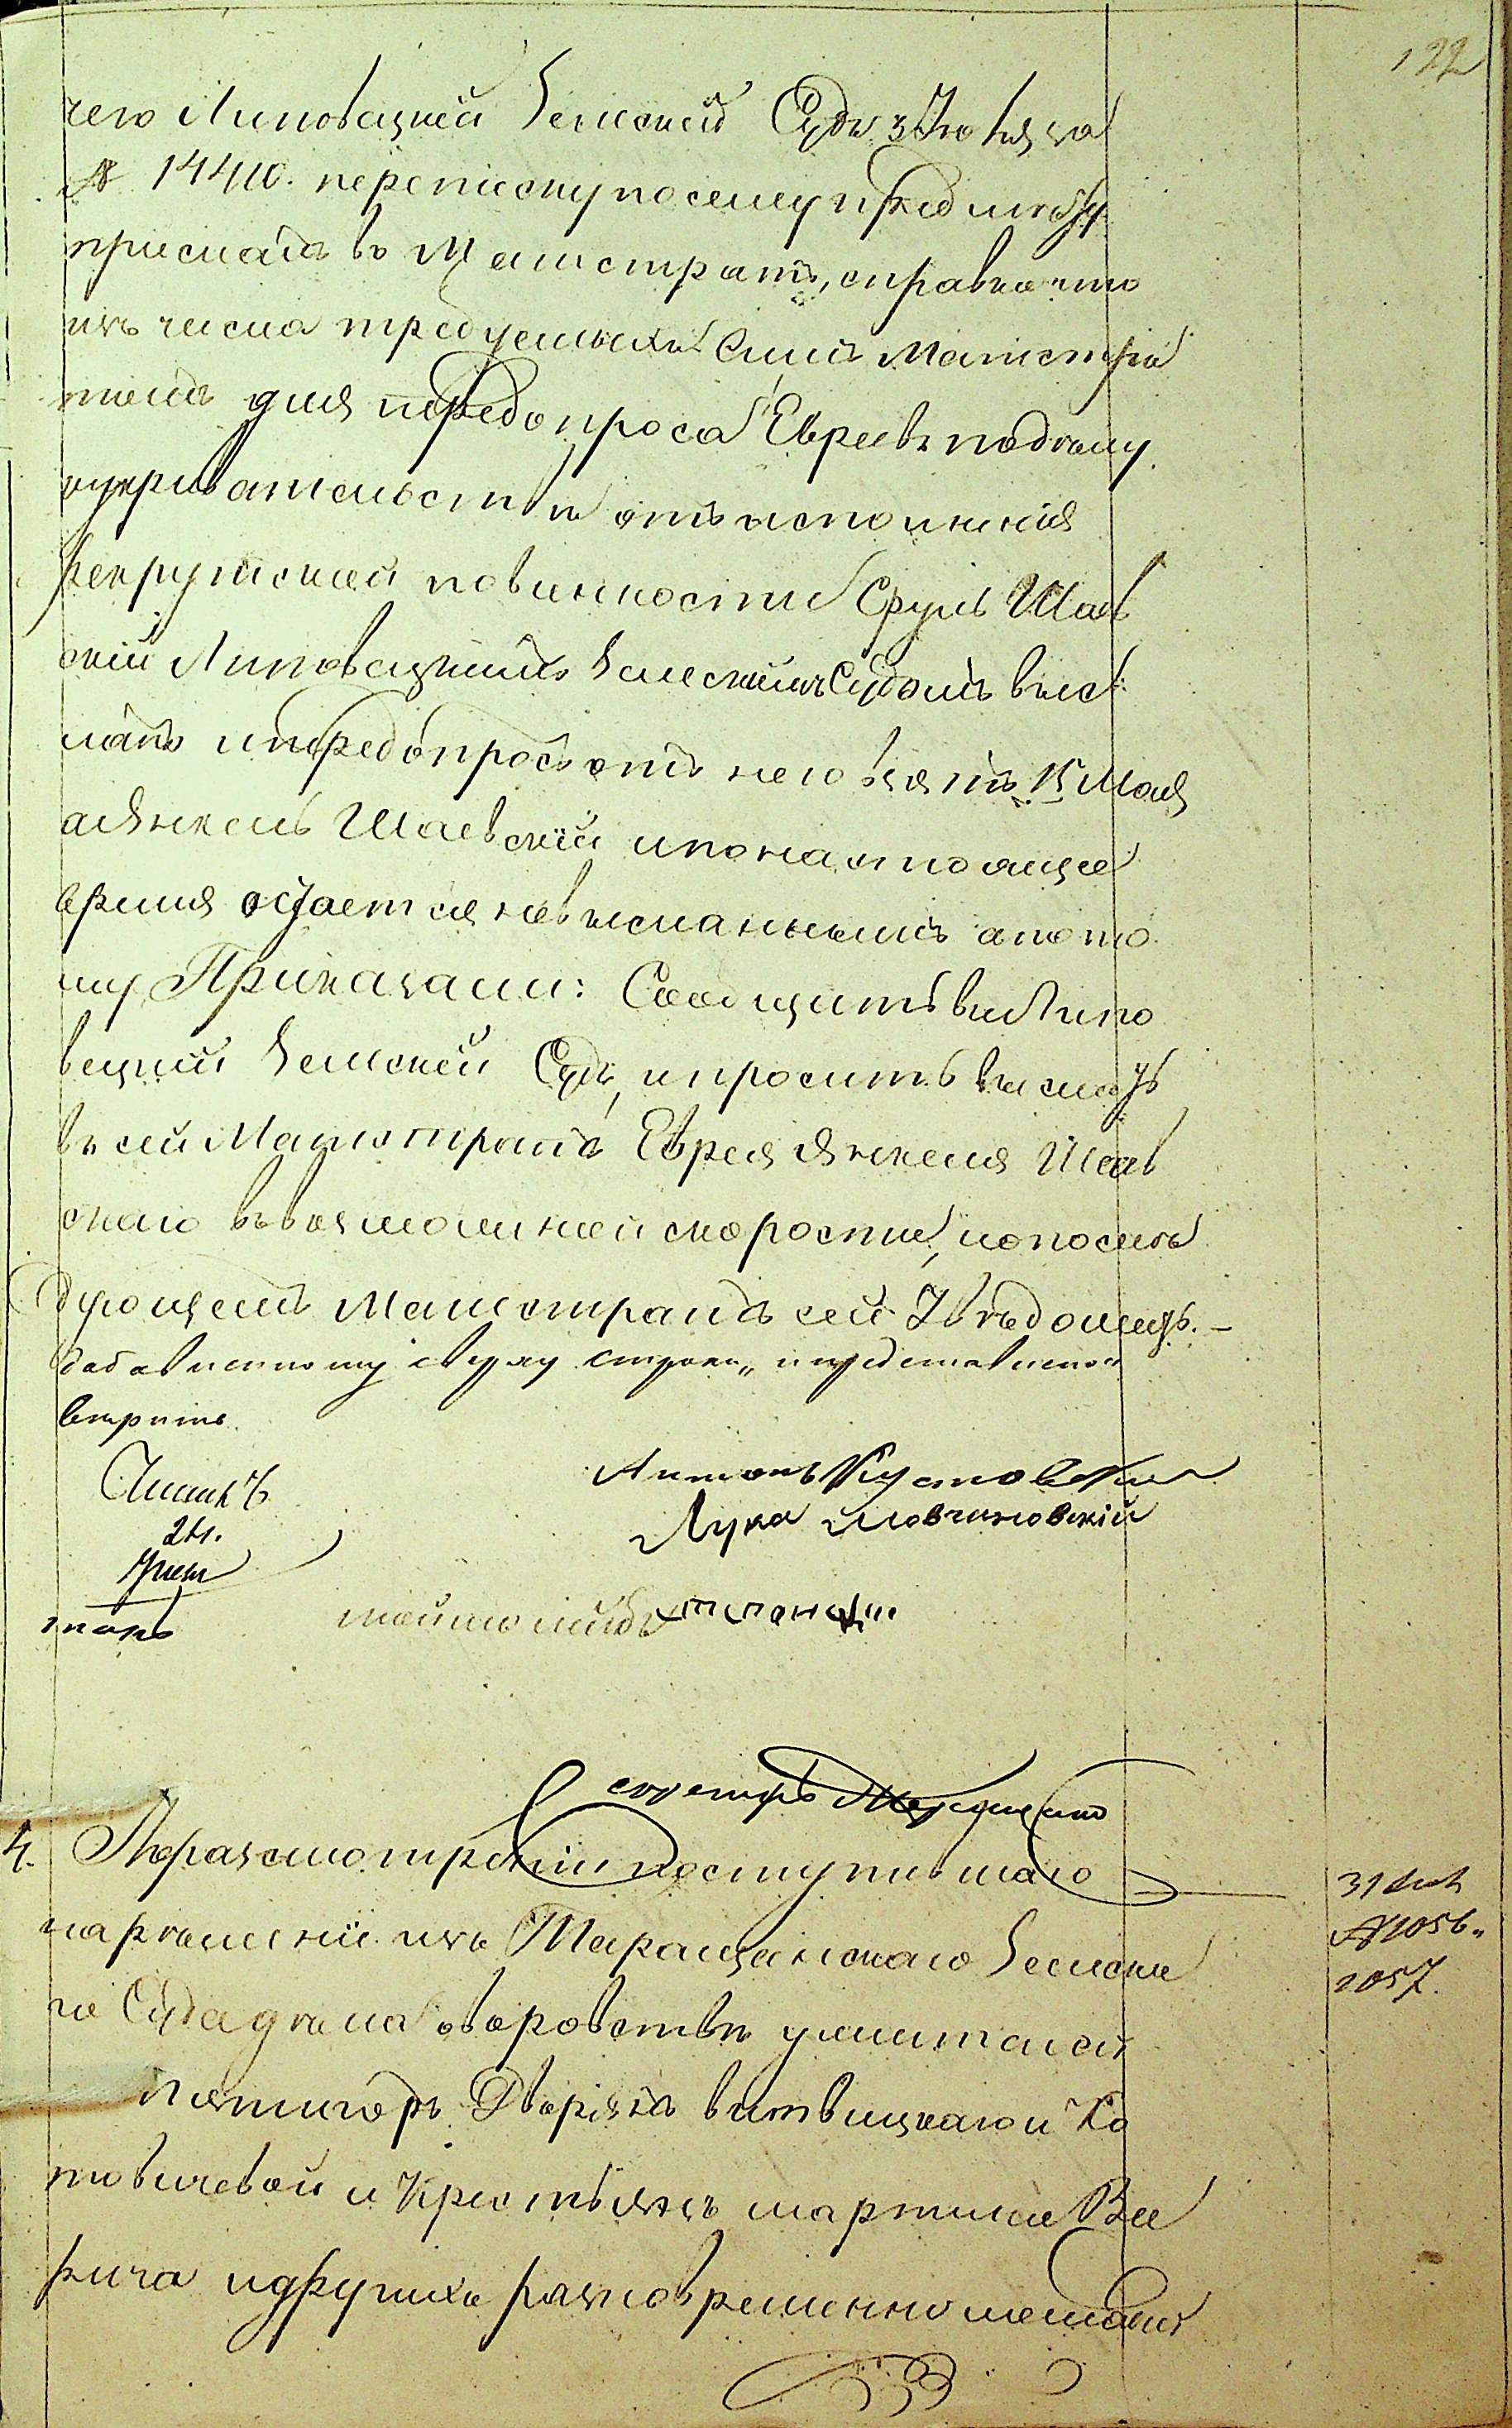 122
чего Липовецкий Земский Судъ 31 Июля за
№ 14410. переписку по сему предмету
прислалъ въ Магистратъ, справка что
изъ числа требуемыхъ симъ Магистра
томъ для передопроса Евреевъ по делу
укрывательствѣ отъ исполненія
рекрутской повинности Сруль Шаев
скій Липовецкимъ Земскимъ Судомъ выс
ланъ и передопросъ отъ него взятъ 15 Мая
а Янкель Шаевскій и по настоящее
время остается невысланнымъ а пото
му Приказали: Сообщить въ Липо
вецкій Земскій Судъ, и просить выслать
въ сей Магистратъ Еврея Янкеля Шаев
скаго въ возможной скорости, и о послѣ
дующемъ Магистратъ сей увѣдомить. —
добавленному сверху строки „и представлено"
вѣрить
Читалъ
Антонъ Кустовский
Лука Мовчановскій
4. По разсмотреніи поступившаго
на решеніе изъ Таращанскаго Земска
го Суда дела о воровствѣ у жителей
Пятигоръ Дворянъ Витвицкаго и Ко
товичевой и Крестьянъ Мартина Ве
рича и другихъ разновременно лошадей
31 Авг
№ 1056.
1057.